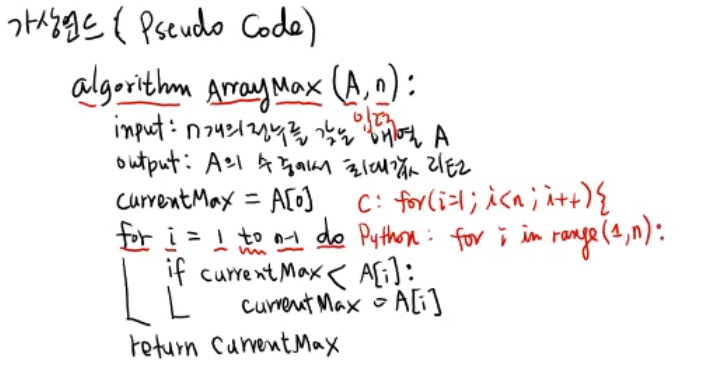 가상언어 ( Pseudo Code)
algorithm ArrayMax (A, n):
input: n개의 정수를 갖는 배열 A
output: A의 수 중에서 최대값 리턴
currentMax = A[0] C: for(i=1; i<n; i++){
for i = 1 to n-1 do Python: for i in range(1,n):
if currentMax < A[i]:
currentMax = A[i]
return currentMax